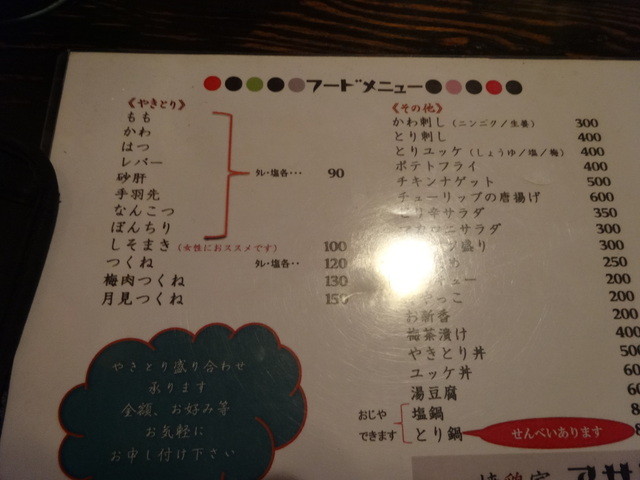 フードメニュー
《やきとり》
もも
かわ
はつ
レバー
砂肝
手羽先
なんこつ
ぼんちり
タレ・塩各・・・ 90
しそまき（女性におススメです） 100
つくね タレ・塩各・・ 120
梅肉つくね 130
月見つくね 150
やきとり盛り合わせ
承ります
金額、お好み等
お気軽に
お申し付け下さい
《その他》
かわ刺し（ニンニク／生姜） 300
とり刺し 400
とりユッケ（しょうゆ／塩／梅） 400
ポテトフライ 400
チキンナゲット 500
チューリップの唐揚げ 600
サラダ 350
マカロニサラダ 300
盛り 300
250
200
200
お新香 200
梅茶漬け 400
やきとり丼 500
ユッケ丼
湯豆腐
塩鍋
とり鍋
おじや
できます
せんべいあります